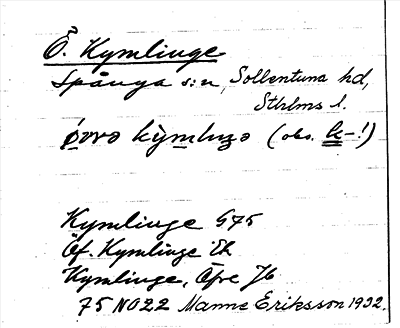 Ö. Kymlinge
Spånga s:n, Sollentuna hd,
Sthlms l.
(obs. k-!)
Kymlinge G75
Öf. Kymlinge Ek
Kymlinge, Öfre Jb
75 NO22 Manne Eriksson 1932.